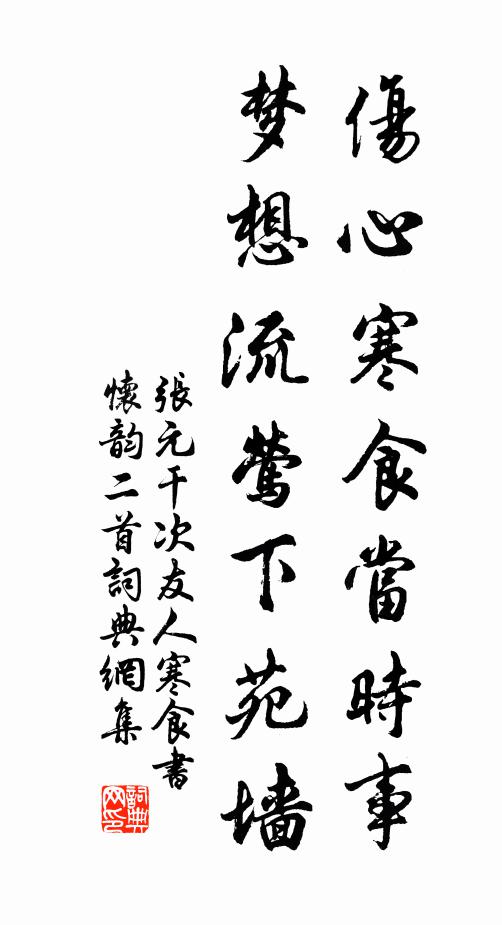 傷心寒食當時事
梦想流鶯下苑墻
張元干次友人寒食書
懷韵二首詞典網集
詞典
网印